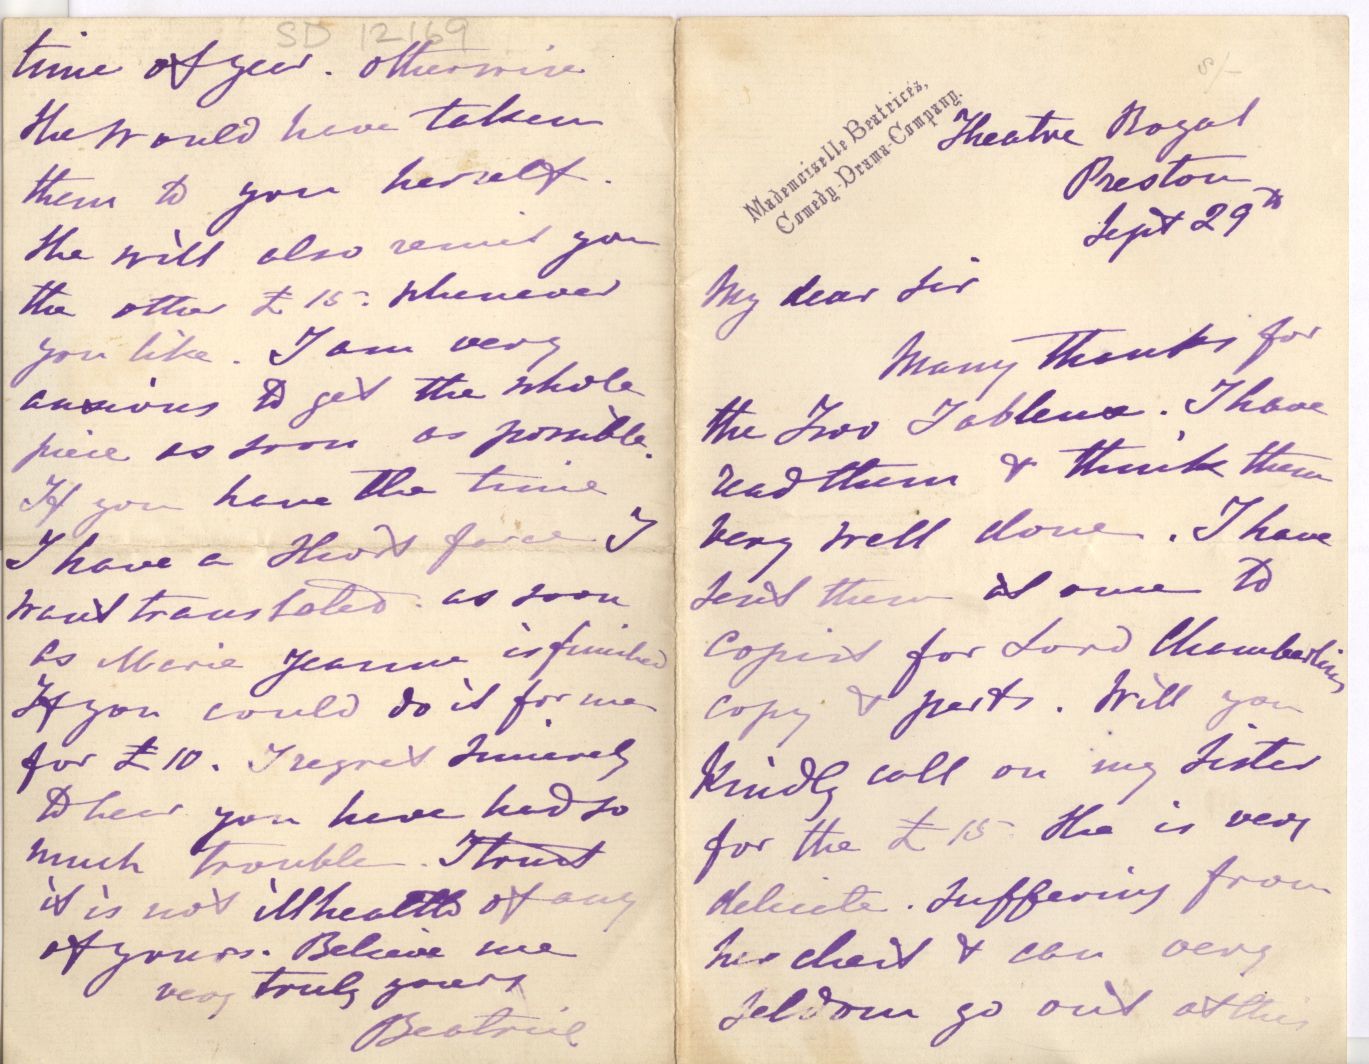 Mademoiselle Beatrice's,
Comedy-Drama-Company.
Theatre Royal
Preston
Sept 29th
My dear Sir
Many thanks for
the Two Tableaux. I have
read them & think them
very well done. I have
sent them at once to
copist for Lord Chamberlins
copy & parts. Will you
Kindly call on my Sister
for the £15 She is very
delicate. Suffering from
her chest & can very
seldom go out at this
SD 12169
time of year. otherwise
She would have taken
them to you herself.
She will also remit you
the other £15. Whenever
you like. I am very
anxious to get the whole
piece as soon as possible.
If you have the time
I have a Short farce I
want translated as soon
as Marie Jeanne is finished
If you could do it for me
for £10. I regret Sincerely
to hear you have had so
much trouble. I trust
it is not illhealth of any
of yours. Believe me
very truly yours
Beatrice